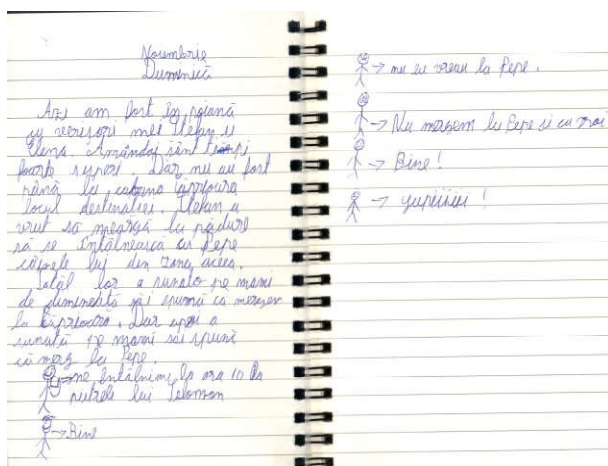 Noiembrie
Duminică
Azi am fost în poiană
cu verișorii mei Ștefan și
Elena. Amândoi sînt
foarte superi. Dar nu au fost
până la cabana Căprioara
locul destinației. Ștefan a
vrut să meargă la pădure
să se întâlnească cu Pepe
câinele lui den zona aceea.
Tatăl lor a sunato pe mami
de dimineată săi spună că mergem
la Căprioara. Dar apoi a
sunată pe mami săi spună
că merg la Pepe.
→ ne întâlnim la ora 10 la
pietrele lui Solomon
→ Bine
→ nu eu vreau la Pepe.
→ Nu mergem la Pepe si cu voi
→ Bine!
→ yupiiiiii!